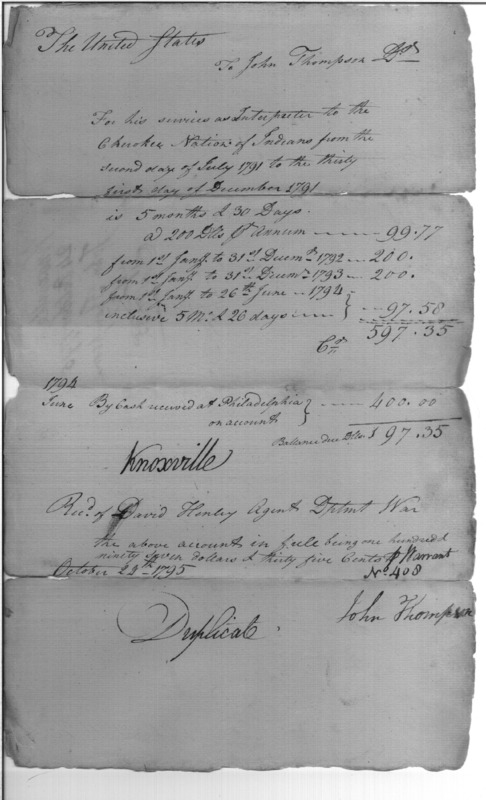 The United States
To John Thompson Dr
For his services as Interpreter to the
Cherokee Nation of Indians from the
second day of July 1791 to the thirty
first day of December 1791
is 5 months & 30 Days.
at 200 Dlls pr annum 99.77
from 1st Jany to 31st Decemr 1792 200.
from 1st Jany to 31st Decemr 1793 200.
from 1st Jany to 26th June 1794
inclusive 5 Ms & 26 days 97.58
597.35
Cr
1794
June By Cash received at Philadelphia
on account 400.00
Balance due Dlls $197.35
Knoxville
Recd of David Henley Agent Dptmt War
the above account in full being one hundred
ninety seven dollars & thirty five Cents pr Warrant
October 24th 1795 No 408
John Thompson
Duplicate